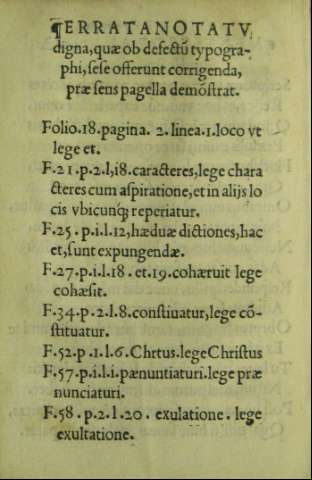 ¶ERRATA NOTATV
digna, quæ ob defectũ typogra-
phi, ſeſe offerunt corrigenda,
præſens pagella demõſtrat.
Folio.18.pagina. 2.linea.1.loco vt
lege et.
F.21.p.2.l,i8.caracteres,lege chara
cteres cum aſpiratione,et in alijs lo
cis vbicunq́ʒ reperiatur.
F.25.p.i.l.12,hæduæ dictiones,hac
et,ſunt expungendæ.
F.27.p.i.l.18.et.19.cohæruit lege
cohæſit.
F.34.p.2.l.8.conſtiuatur,lege cõ-
ſtituatur.
F.52.p.1.l.6.Chrtus.lege Chriſtus
F.57.p.i.l.i.pænuntiaturi.lege præ
nunciaturi.
F.58.p.2.l.20. exulatione. lege
exultatione.